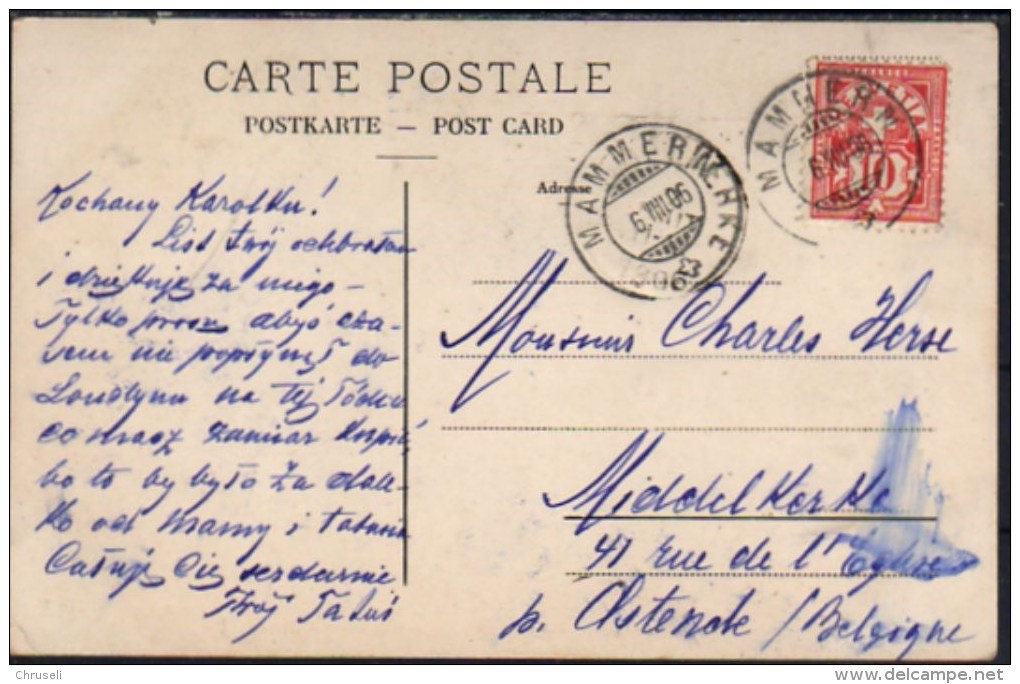 CARTE POSTALE
POSTKARTE — POST CARD
Adresse
MAMMERN
6.VIII.06
MAMMERN
6.VIII.06
10
1906
Kochany Karolku!
List twój odebrałem
i dziękuję za niego —
Tylko proszę abyś cza-
sem nie popłynął do
Londynu na tej łódce
co masz zamiar kupić
bo to by było za dale-
ko od Mamy i Tatusia
Całuję Cię serdecznie
Twój Tatuś
Monsieur Charles Herse
Middelkerke
41 rue de l'Église
p. Ostende / Belgique
Chruseli
delcampe.net